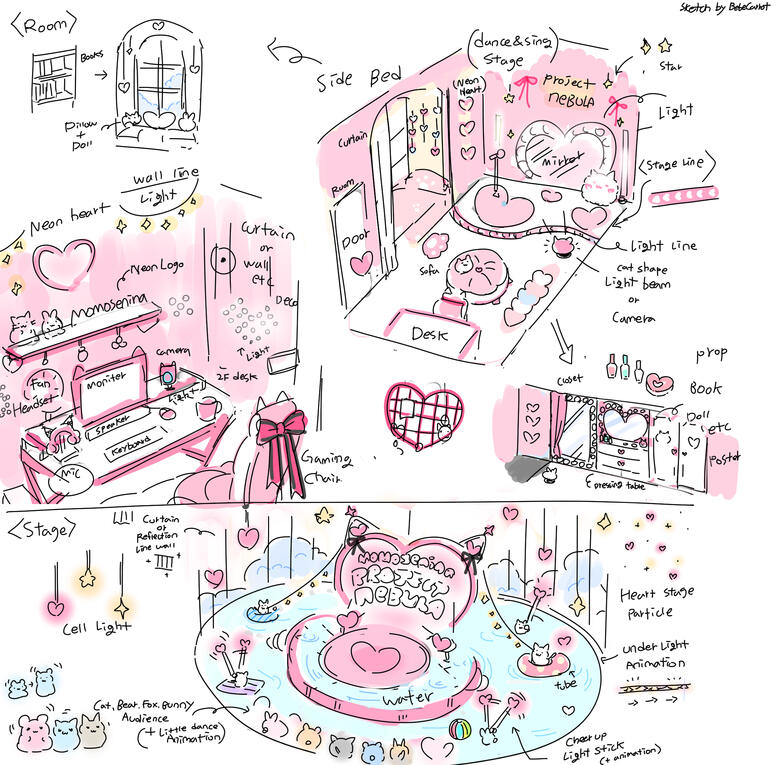 Sketch by BebeCarrot
<Room>
Books
Pillow
+
Doll
Side Bed
(dance&sing
Stage)
Star
Neon
Heart
PROJECT
NEBULA
Light
Curtain
Mirror
<Stage line>
Room
Door
Light line
Sofa
cat shape
Light beam
or
Camera
Desk
wall line
Light
Neon heart
Curtain
or
wall
etc
Neon Logo
Momosenina
Deco
camera
Moniter
Light
2F desk
Light
Fan
Headset
Speaker
Keyboard
Mic
Gaming
Chair
prop
Closet
Book
Doll
etc
Poster
Dressing table
<Stage>
Curtain
or
Reflection
Line wall
MOMOSENINA
PROJECT
NEBULA
Cell Light
Heart stage
Particle
under Light
Animation
tube
water
Cat, Bear, Fox, Bunny
Audience
(+ Little dance)
Animation
Cheer up
Light Stick
(+ animation)